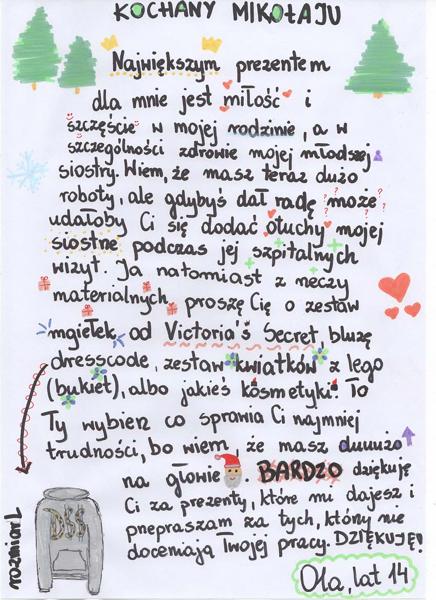 KOCHANY MIKOŁAJU
Największym prezentem
dla mnie jest miłość i
szczęście w mojej rodzinie, a w
szczególności zdrowie mojej młodszej
siostry. Wiem, że masz teraz dużo
roboty, ale gdybyś dał radę może
udałoby Ci się dodać otuchy mojej
siostrze podczas jej szpitalnych
wizyt. Ja natomiast z rzeczy
materialnych, proszę Cię o zestaw
mgiełek, od Victoria's Secret, bluzę
dresscode, zestaw kwiatków z lego
(bukiet), albo jakieś kosmetyki. To
Ty wybierz co sprawia Ci najmniej
trudności, bo wiem, że masz duuużo
na głowie. BARDZO dziękuję
Ci za prezenty, które mi dajesz i
przepraszam za tych, który nie
doceniają Twojej pracy. DZIĘKUJĘ!
Ola, lat 14
rozmiar L